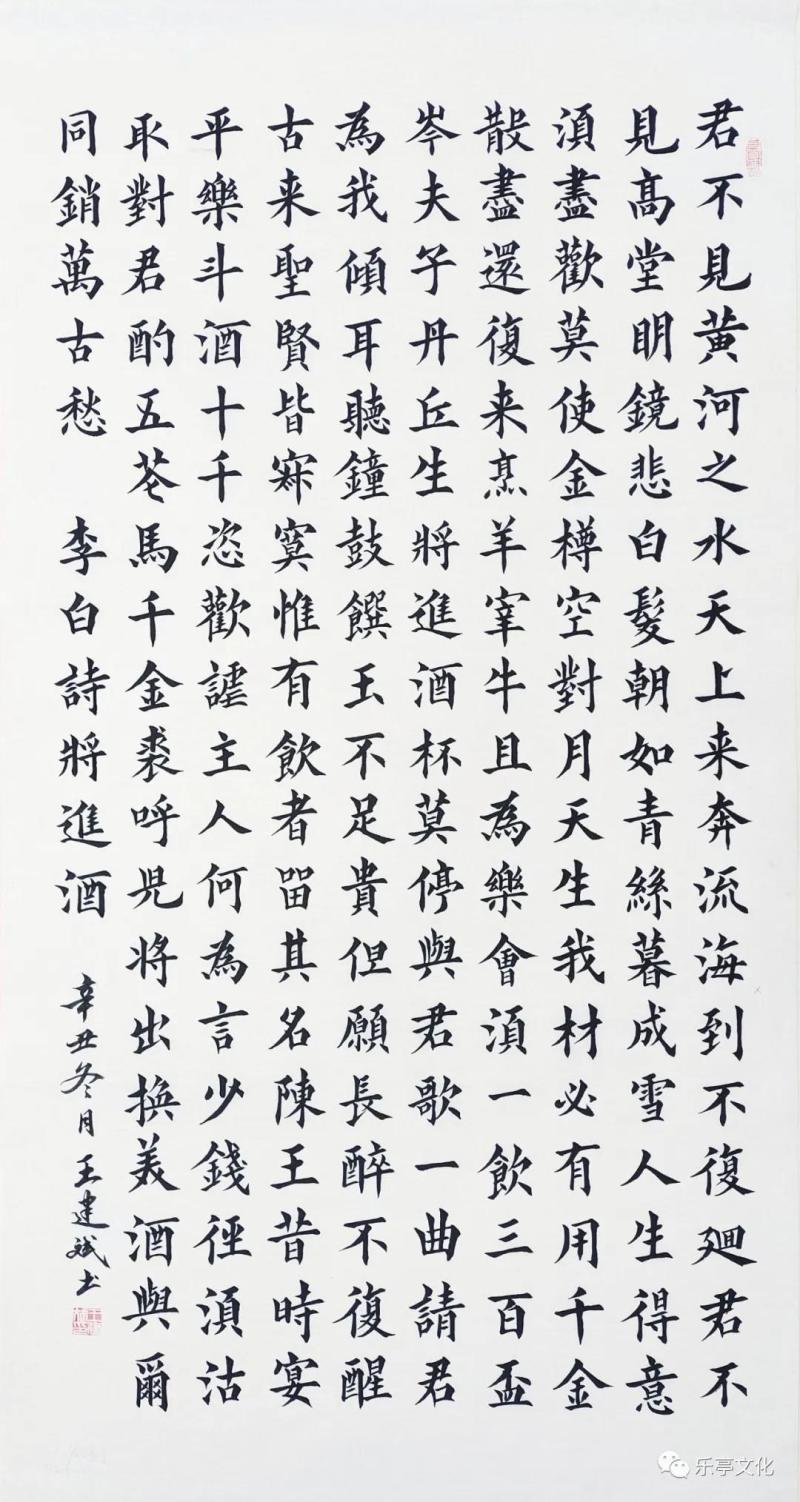 君不見黃河之水天上来奔流海到不復廻君不
見高堂明鏡悲白髮朝如青絲暮成雪人生得意
須盡歡莫使金樽空對月天生我材必有用千金
散盡還復来烹羊宰牛且為樂會須一飲三百盃
岑夫子丹丘生將進酒杯莫停與君歌一曲請君
為我傾耳聽鐘鼓饌玉不足貴但願長醉不復醒
古来聖賢皆寂寞惟有飲者留其名陳王昔時宴
平樂斗酒十千恣歡謔主人何為言少錢徑須沽
取對君酌五花馬千金裘呼兒將出換美酒與爾
同銷萬古愁 李白詩將進酒 辛丑冬月王建斌书
乐亭文化